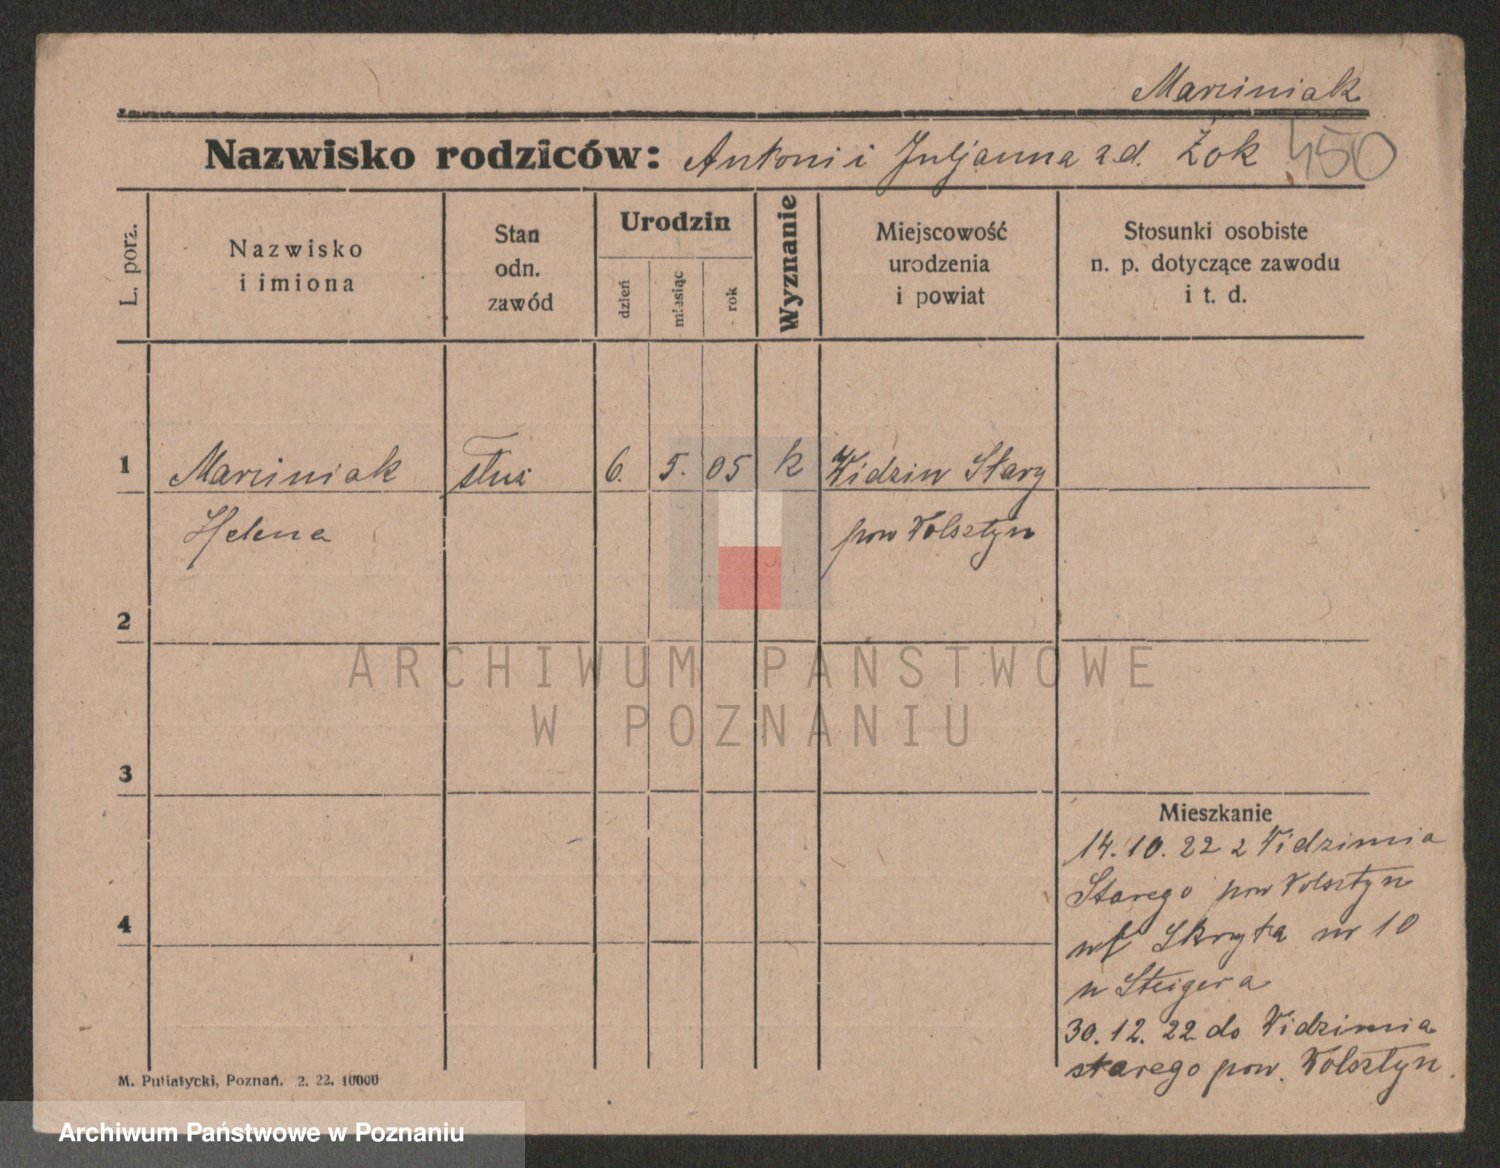 Marciniak
Nazwisko rodziców: Antoni i Juljanna z d. Żok
450
L. porz.
Nazwisko
i imiona
Stan
odn.
zawód
Urodzin
dzień
miesiąc
rok
Wyznanie
Miejscowość
urodzenia
i powiat
Stosunki osobiste
n. p. dotyczące zawodu
i t. d.
1 Marciniak służ 6. 5. 05 k Widzim Stary
Helena pow Wolsztyn
2
3
4
Mieszkanie
14. 10. 22 z Widzimia
Starego pow Wolsztyn
Skryta nr 10
u Steigera
30. 12. 22 do Widzimia
starego pow. Wolsztyn.
M. Putiatycki, Poznań. 2. 22. 10000
ARCHIWUM PAŃSTWOWE
W POZNANIU
Archiwum Państwowe w Poznaniu